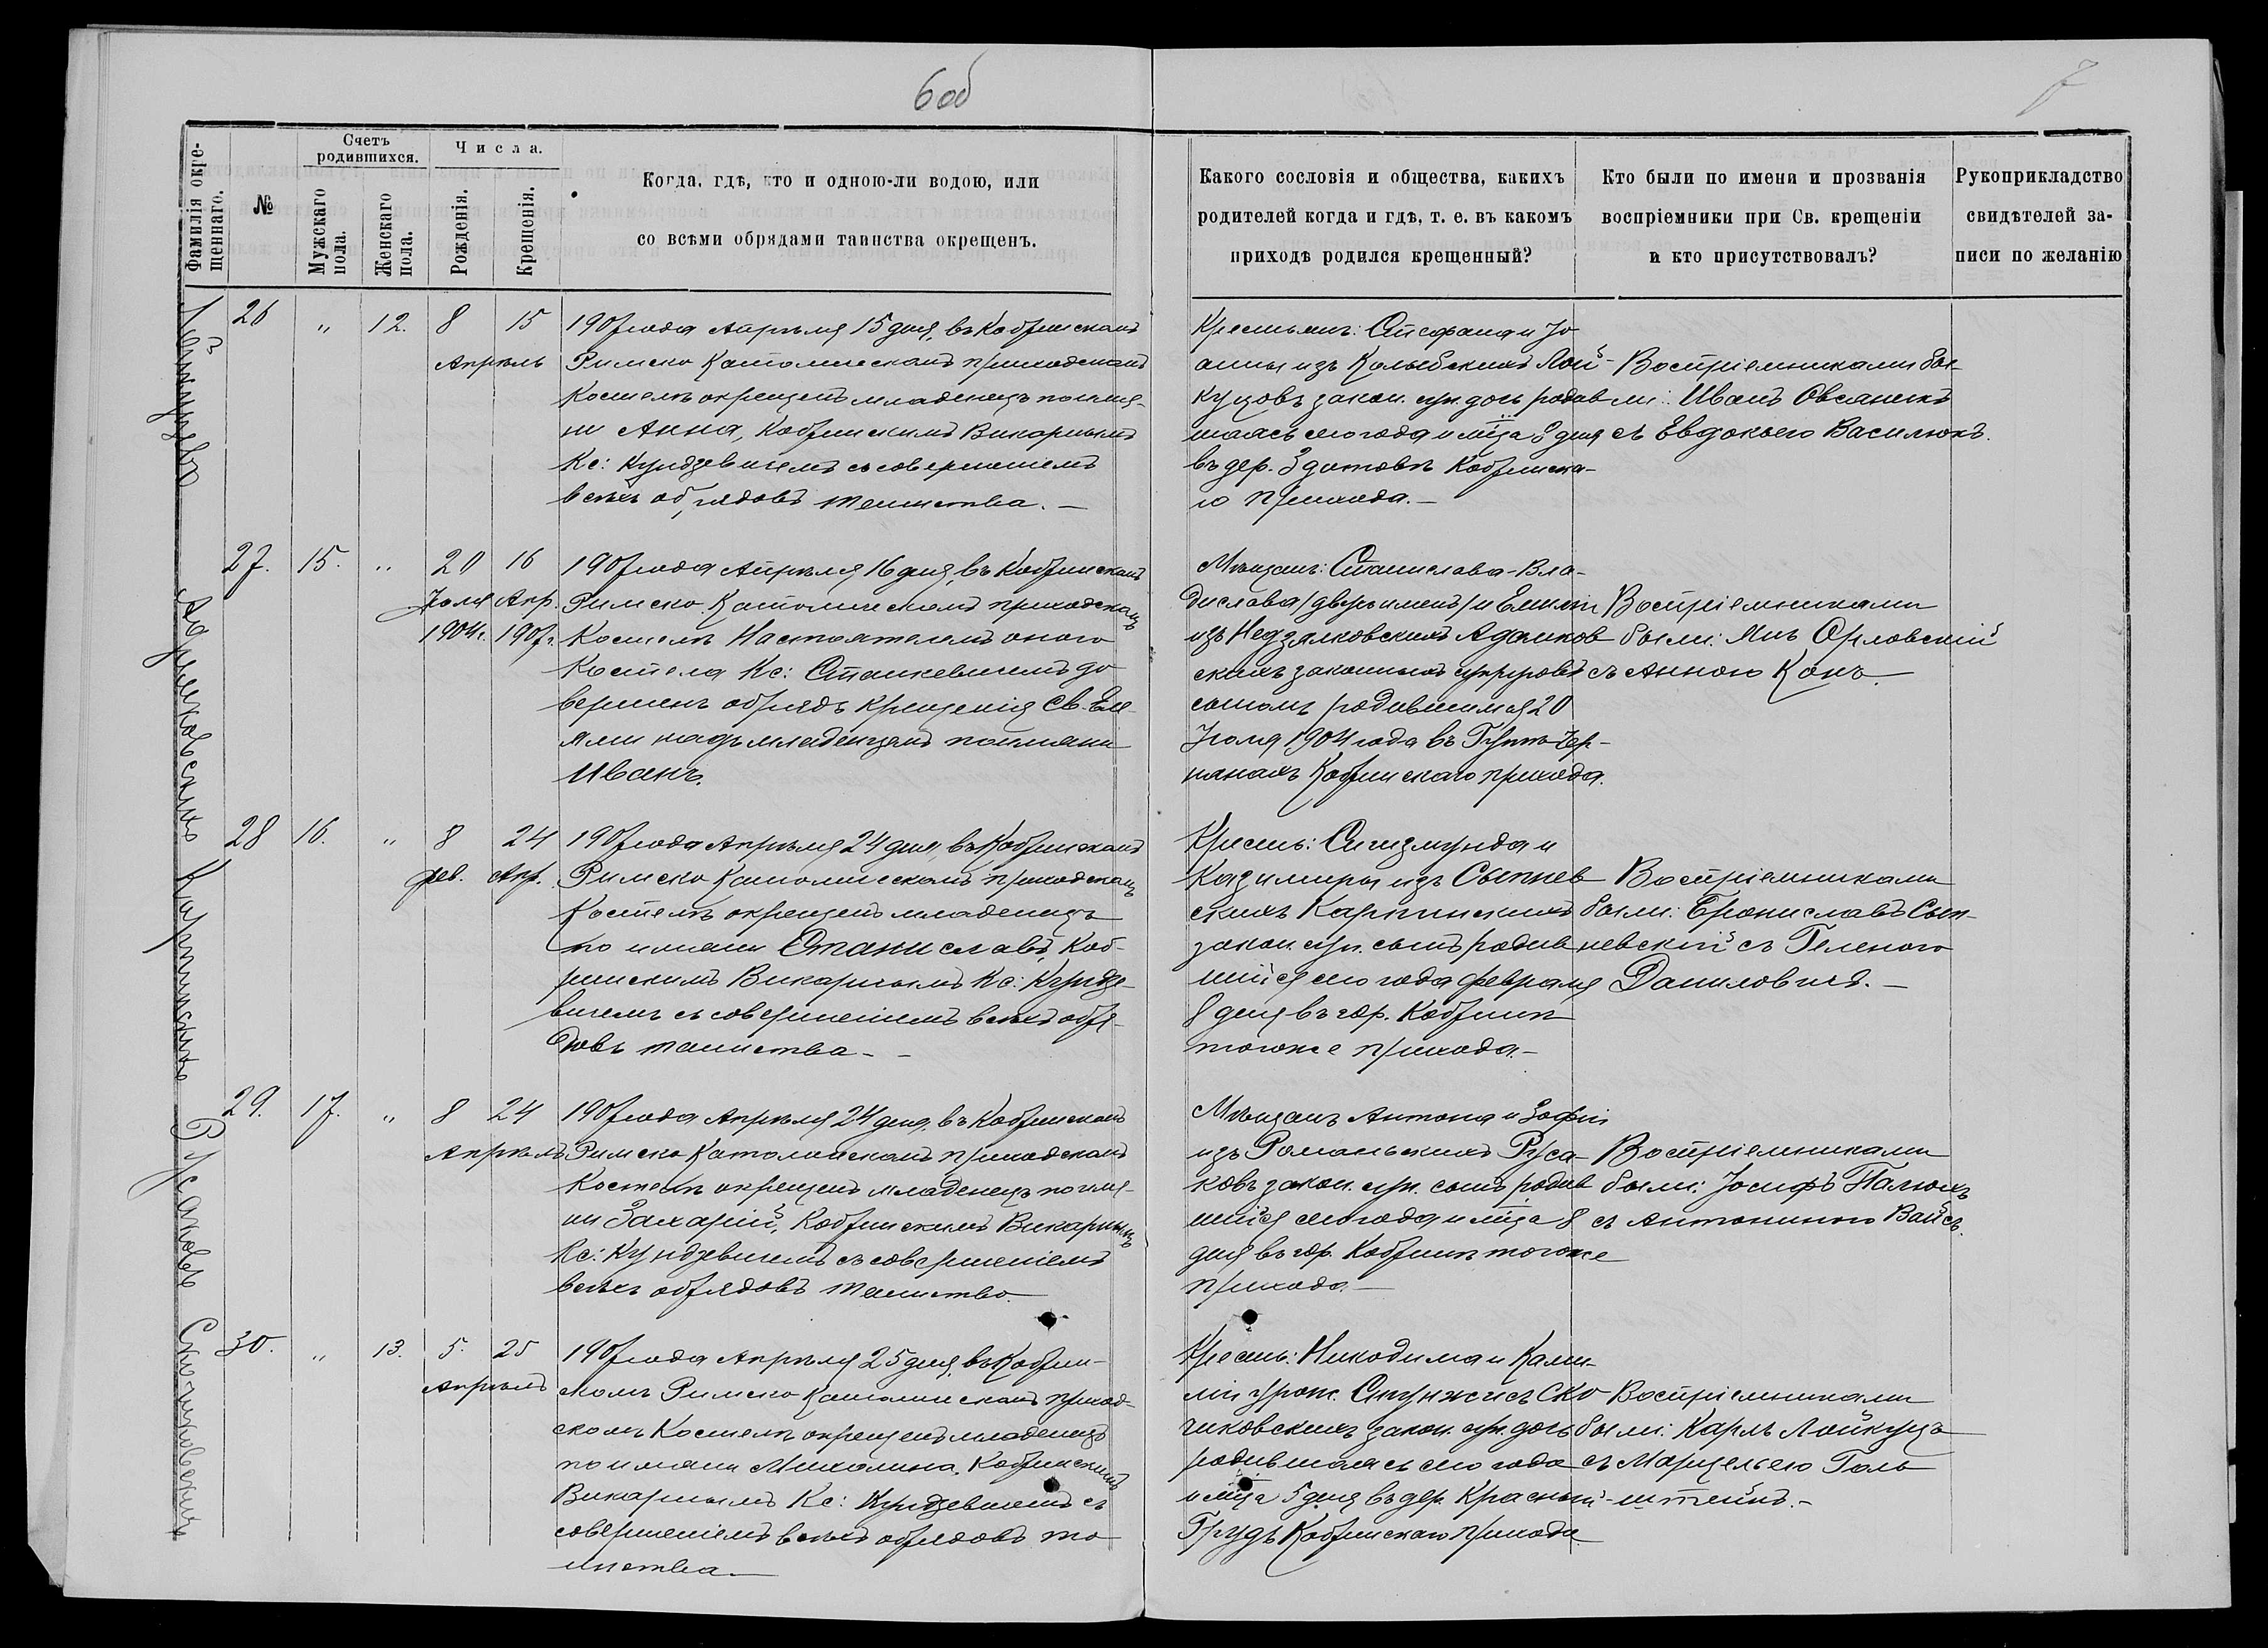 6об
7
Фамилія окре-
щеннаго.
№
Счетъ
родившихся.
Мужскаго
пола.
Женскаго
пола.
Числа.
Рожденія.
Крещенія.
Когда, гдѣ, кто и одною-ли водою, или
со всѣми обрядами таинства окрещенъ.
Какого сословія и общества, какихъ
родителей когда и гдѣ, т. е. въ какомъ
приходѣ родился крещенный?
Кто были по имени и прозванія
воспріемники при Св. крещеніи
и кто присутствовалъ?
Рукоприкладство
свидѣтелей за-
писи по желанію
Лойкуцова
26 " 12. 8 15
Апрѣль
1907 года Апрѣля 15 дня, въ Кобринскомъ
Римско Католическомъ приходскомъ
Костелѣ окрещенъ младенецъ по име-
ни Анна, Кобринскимъ Викарнымъ
Кс: Кундзевичемъ съ совершеніемъ
всѣхъ обрядовъ таинства. —
Крестьянъ: Стефана и Іо
анны изъ Колыбскихъ Лой-
куцовъ закон. супр. дочь родив
шаясь сего года и м-ца 8 дня
въ дер. Здитовѣ Кобринска-
го прихода. —
Воспріемниками бы-
ли: Иванъ Овсаникъ
съ Евдокьею Василюкъ.
Адамковскихъ
27. 15. " 20 16
Іюля Апр.
1904 г. 1907 г.
1907 года Апрѣля 16 дня, въ Кобринскомъ
Римско Католическомъ приходскомъ
Костелѣ Настоятелемъ оного
Костела Кс: Станкевичемъ до
вершенъ обрядъ крещенія Св. Еле-
ями надъ младенцемъ по имени
Иванъ.
Мѣщанъ: Станислава-Вла-
дислава /двухъ именъ/ и Емиліи
изъ Недзялковскихъ Адамков
скихъ законныхъ супруговъ
сыномъ родившимся 20
Іюля 1904 года въ Гутѣ-Чер-
нянахъ Кобринскаго прихода.
Воспріемниками
были: Янъ Орловскій
съ Анною Конъ.
Карпинскихъ
28 16. " 8 24
фев. Апр.
1907 года Апрѣля 24 дня, въ Кобринскомъ
Римско Католическомъ приходскомъ
Костелѣ окрещенъ младенецъ
по имени Станиславъ, Коб-
ринскимъ Викарнымъ Кс: Кундзе-
вичемъ съ совершеніемъ всѣхъ обря-
довъ таинства - -
Крестьнъ: Сигизмунда и
Казимиры изъ Сыпнев
скихъ Карпинскихъ
закон. супр. сынъ родив
шійся сего года февраля
8 дня въ гор. Кобринѣ
тогоже прихода. —
Воспріемниками
были: Брониславъ Сып-
невскій съ Геленою
Даниловичъ. —
Русаковъ
29. 17. " 8 24
Апрѣль
1907 года Апрѣля 24 дня, въ Кобринскомъ
Римско Католическомъ приходскомъ
Костелѣ окрещенъ младенецъ по име-
ни Захарій, Кобринскимъ Викарнымъ
Кс: Кундзевичемъ съ совершеніемъ
всѣхъ обрядовъ таинства.
Мѣщанъ Антона и Зофіи
изъ Романьскихъ Руса-
ковъ закон. супр. сынъ родив
шійся сего года и м-ца 8
дня въ гор. Кобринѣ тогоже
прихода. —
Воспріемниками
были: Іосифъ Палюхъ
съ Антониною Вайсъ.
30. " 13. 5. 25
Апрѣль
1907 года Апрѣля 25 дня, въ Кобрин-
скомъ Римско Католическомъ приход-
скомъ Костелѣ окрещенъ младенецъ
по имени Михалина, Кобринскимъ
Викарнымъ Кс: Кундзевичемъ съ
совершеніемъ всѣхъ обрядовъ та
инства —
Никодима и
закон. супр. дочь
родившаясь сего года
и м-ца 5 дня въ дер. Красный-
Грудъ Кобринскаго прихода
Воспріемниками
были: Карлъ Лойкуцъ
съ Марцельею Голь
штейнъ. -